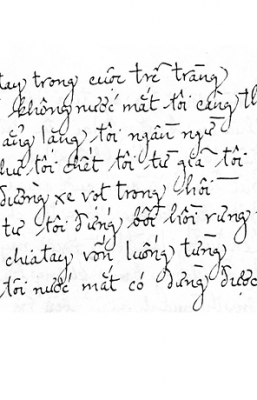 tay trong cuộc trễ tràng
không nước mắt tôi càng th
ẳng lặng tôi ngẩn ngữ
như tôi chết tôi từ giã tôi
đường xe vọt trong hồi
tư tôi đứng bồi hồi rưng
chia tay vốn luống từng
tôi nước mắt có đừng được